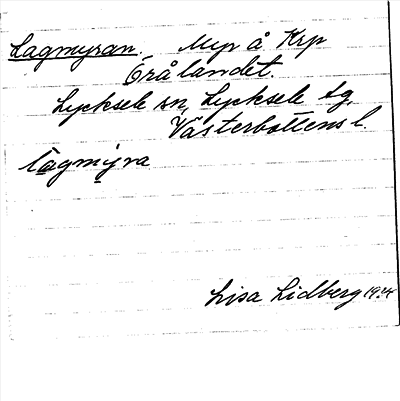 Lagmyran. Myr å Krp
Örålandet.
Lycksele sn, Lycksele tg,
Västerbottens l.
lågmy̱ra
Lisa Lidberg